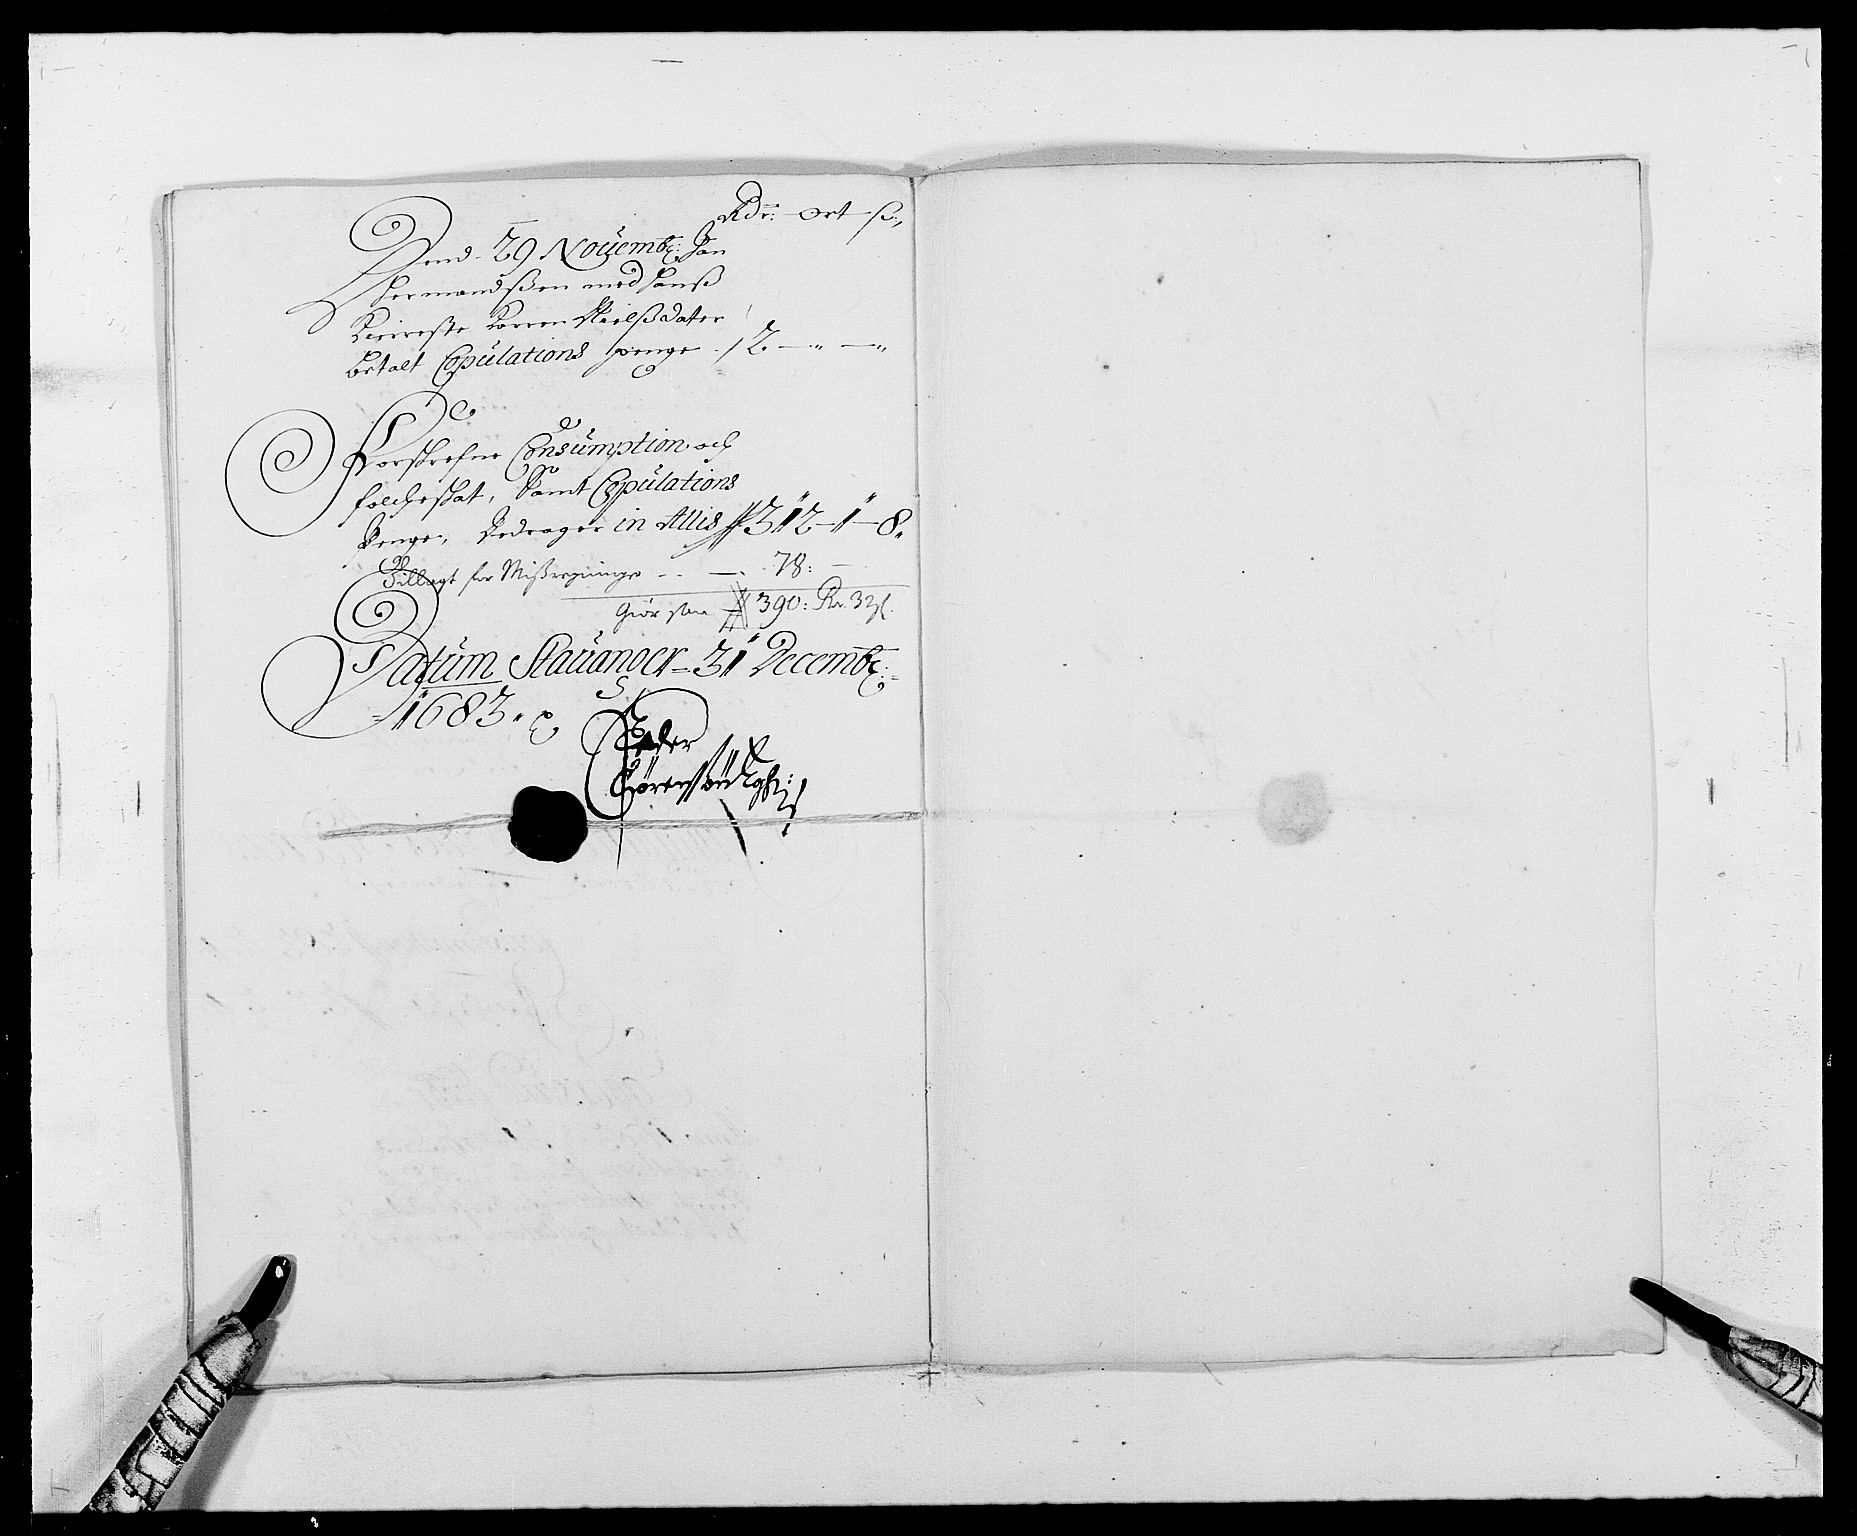 Rdr: — ort — ß:,
Dend 29 Nouemb: Jan
Hermandßen med hanß
Kierreste Karren Nielßdater
betalt Copulations penge. 2 — „ — „
Forschrefne Consumption och
folcheskat, Samt Copulations
Penge, Bedrager in Allis 312 — 1 — 8.
Tillagt for Mißregninge - - — . 78: —
Giør sam 390: Rr. 32ß.
Datum Stauanger = 31 Decemb:
= 1683.
Peder